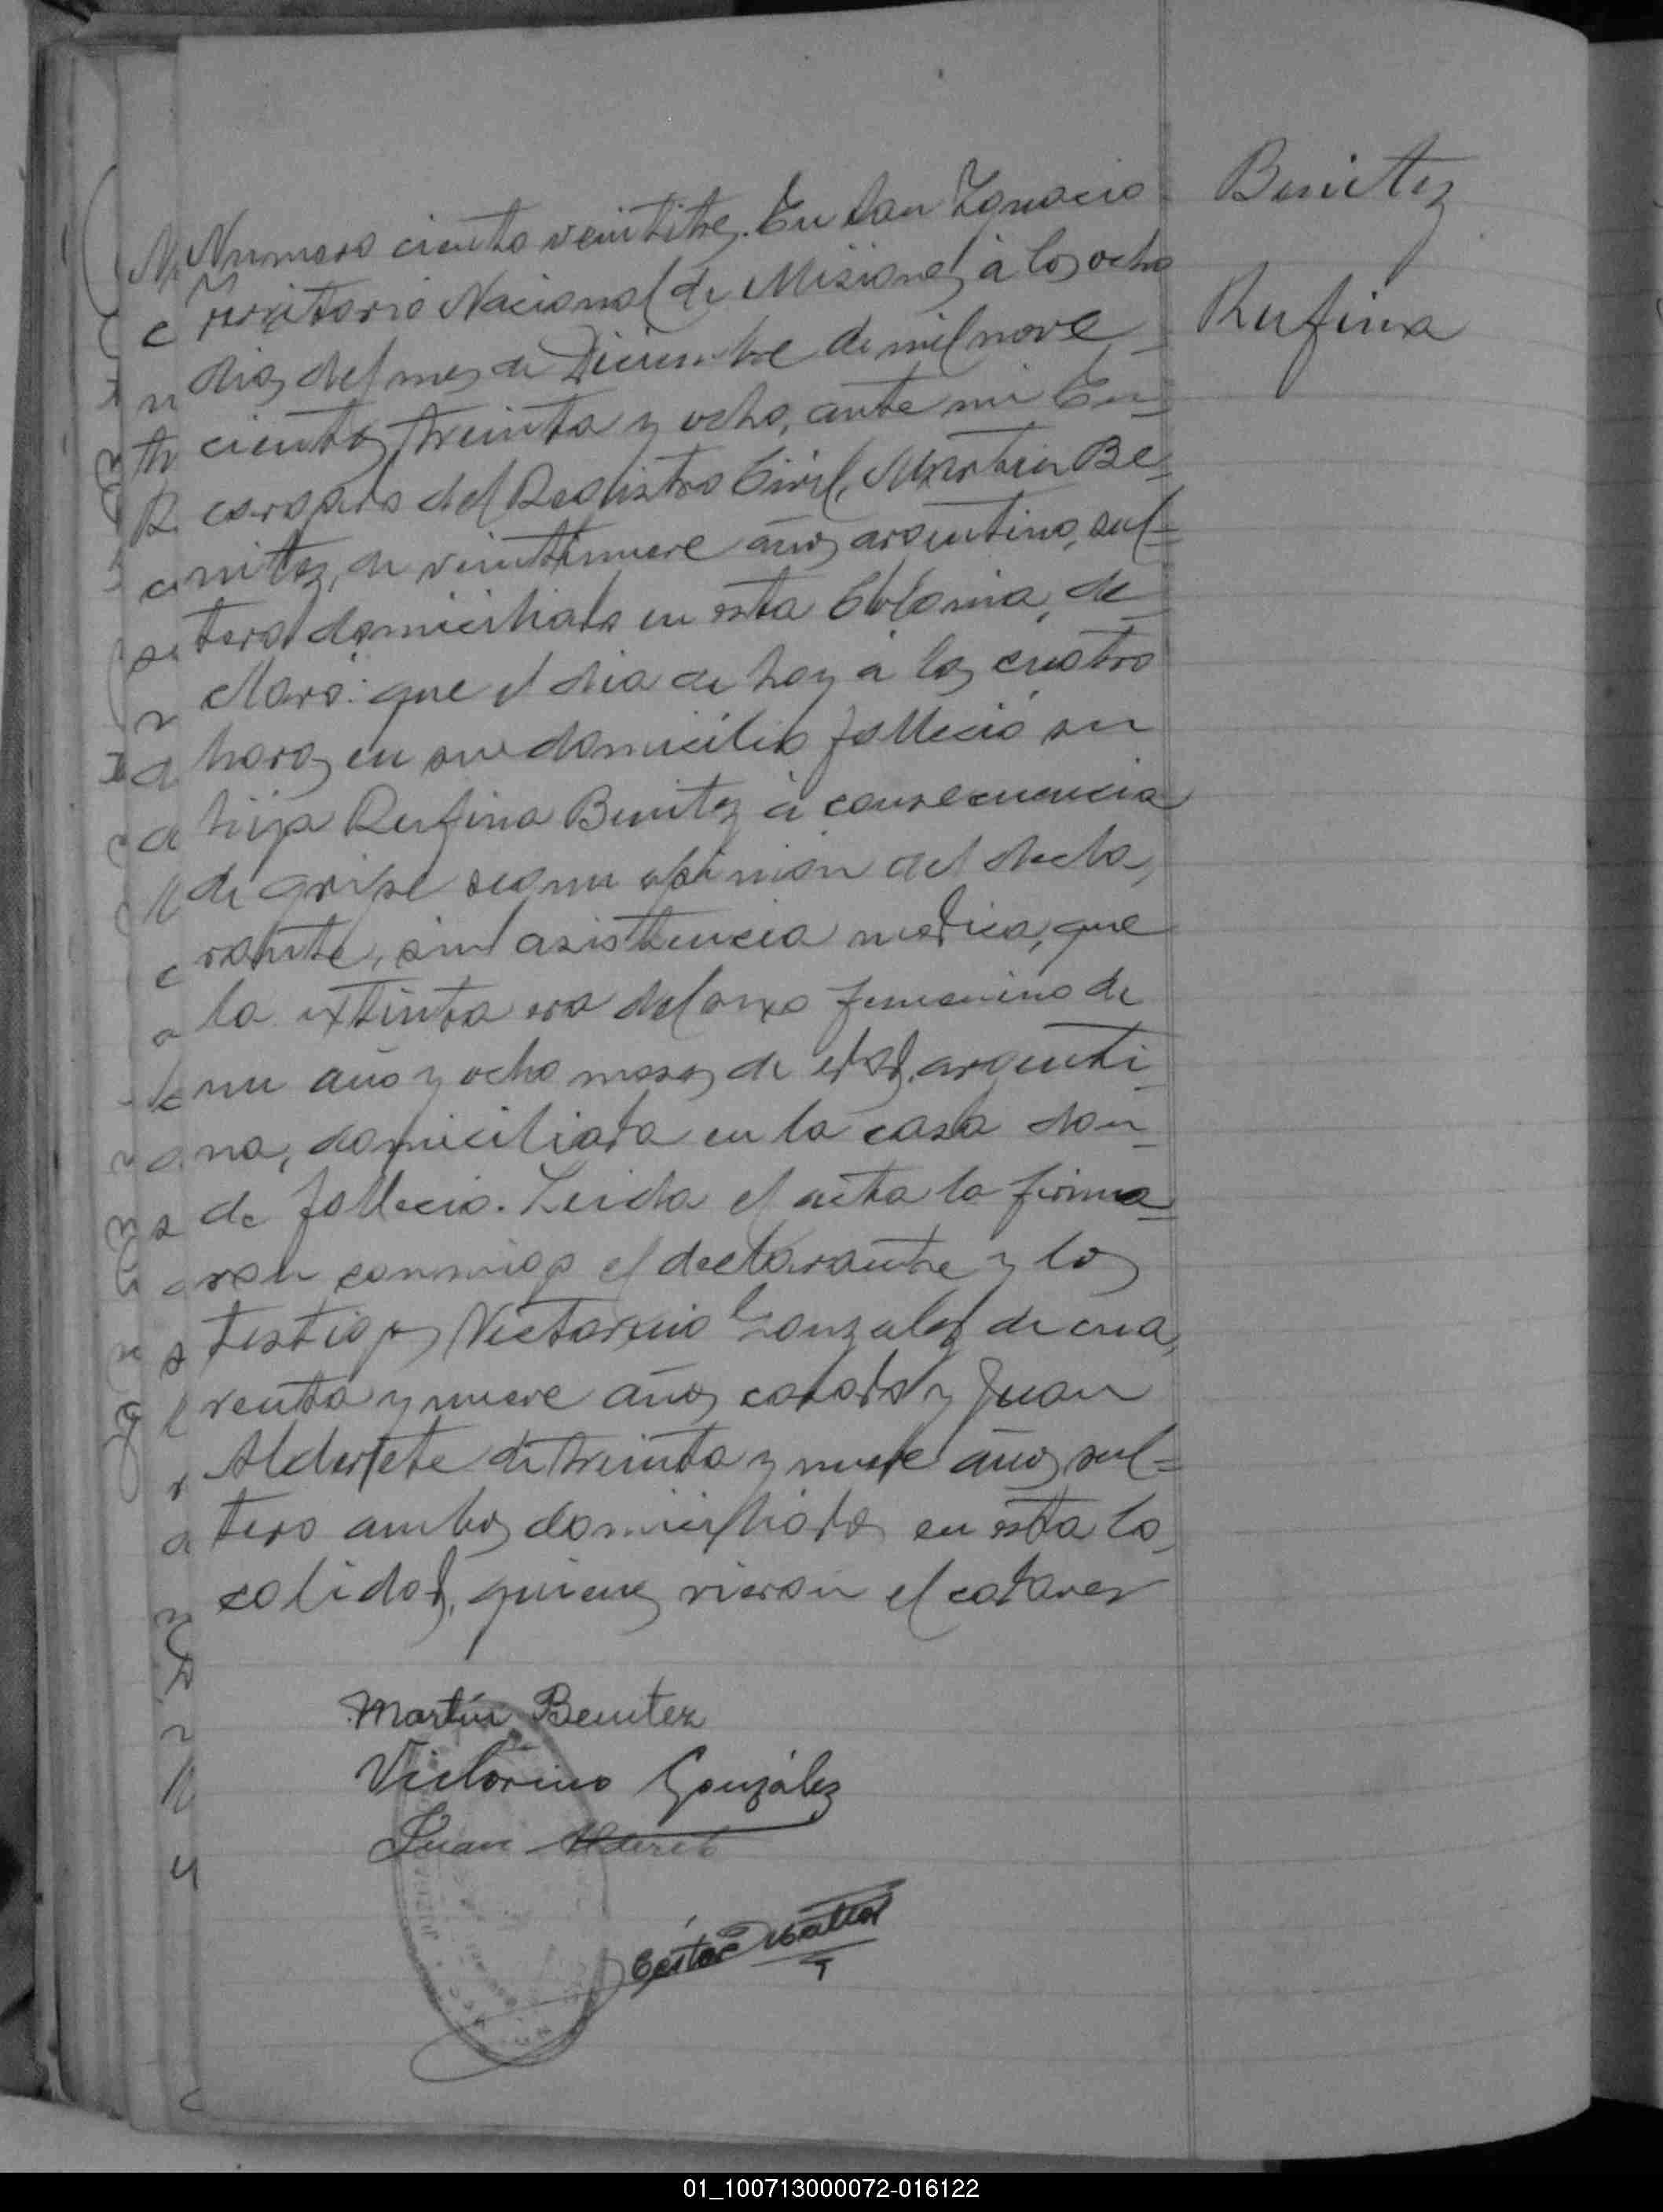 Benitez
Rufina
Numero ciento veintitres. En San Ignacio
Territorio Nacional de Misiones á los ocho
dias del mes de Diciembre de mil nove
cientos treinta y ocho, ante mi En-
cargado del Registro Civil, Martin Be-
nitez, de veintinueve años argentino, sol-
tero domiciliado en esta Colonia, de-
claró: que el dia de hoy á las cuatro
horas en su domicilio fallecio su
hija Rufina Benitez á consecuencia
de gripe segun opinion del decla-
rante, sin asistencia medica, que
la extinta era del sexo femenino de
un año y ocho meses de edad, argenti-
na, domiciliada en la casa don-
de fallecio. Leida el acta la firma-
ron conmigo el declarante y los
testigos Victorino Gonzalez de cua-
renta y nueve años casado y Juan
Alderete de treinta y nueve años sol-
tero ambos domiciliados en esta lo-
calidad, quienes vieron el cadaver
Martín Benitez
Victorino González
Juan Alderete
01_100713000072-016122